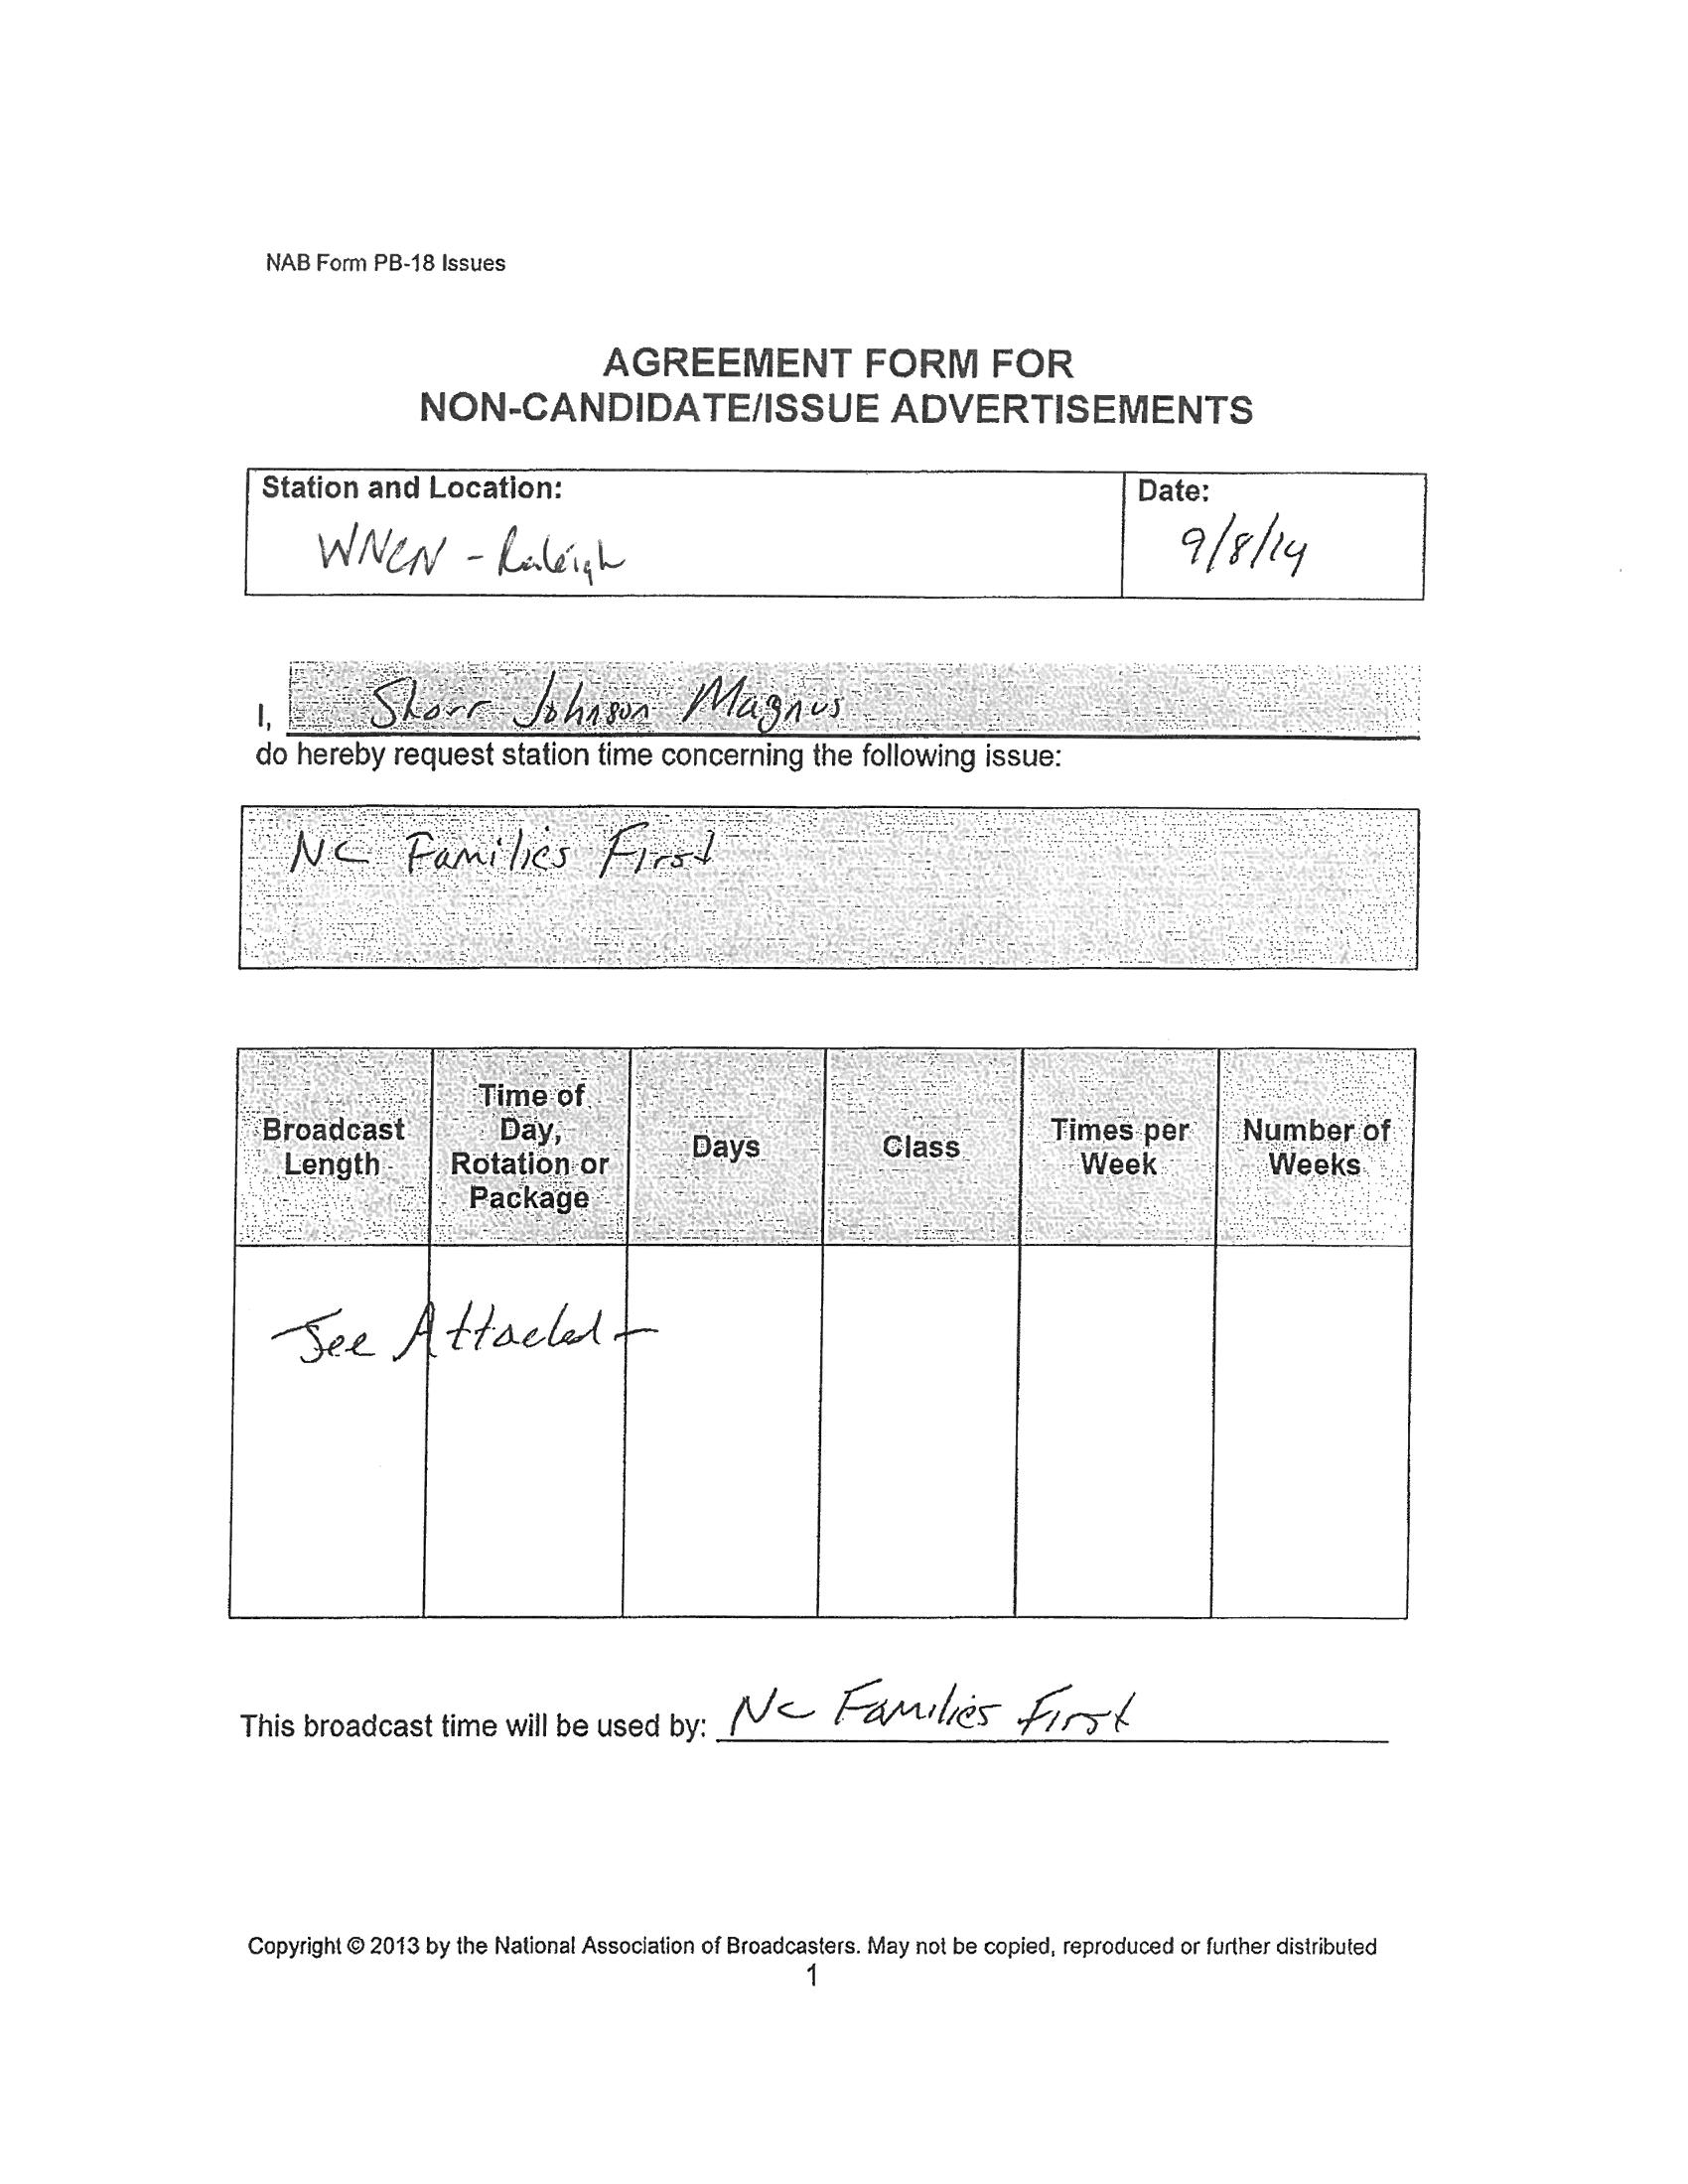 NAB Form PB-18 Issues
AGREEMENT FORM FOR
NON-CANDIDATE/ISSUE ADVERTISEMENTS
Station and Location:
WNCN - Raleigh
Date:
9/8/14
I, Shorr Johnson Magnus
do hereby request station time concerning the following issue:
NC Families First
Broadcast
Length
Time of
Day,
Rotation or
Package
Days
Class
Times per
Week
Number of
Weeks
- See Attached -
This broadcast time will be used by: NC Families First
Copyright © 2013 by the National Association of Broadcasters. May not be copied, reproduced or further distributed
1